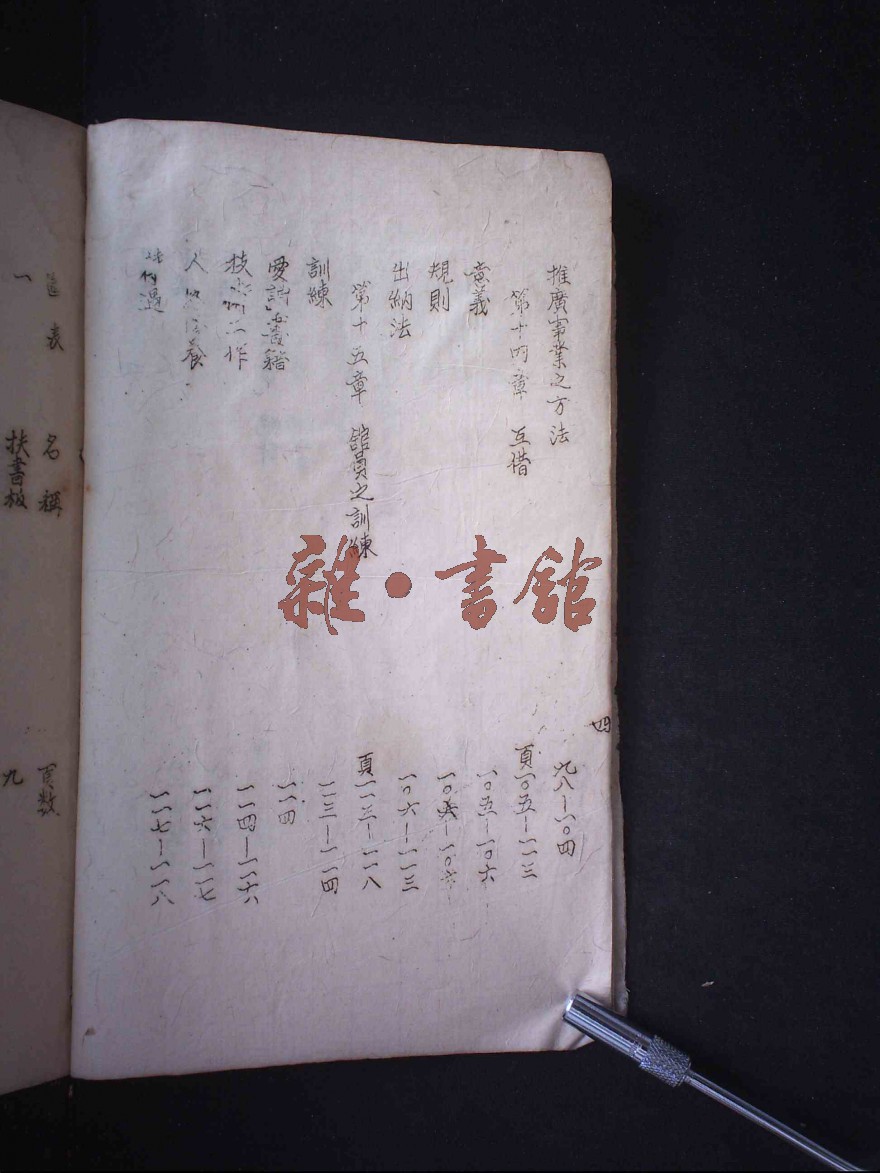 四
推廣事業之方法 九八—一〇四
第十四章 互借 頁一〇五—一一三
意義 一〇五—一〇六
規則 一〇六—一〇六
出納法 一〇六—一一三
第十五章 館員之訓練 頁一一三—一一八
訓練 一一三—一一四
愛讀書籍 一一四
技術工作 一一四—一一六
人 養 一一六—一一七
待遇 一一七—一一八
表 名稱 頁數
一 扶書板 九
雜·書館